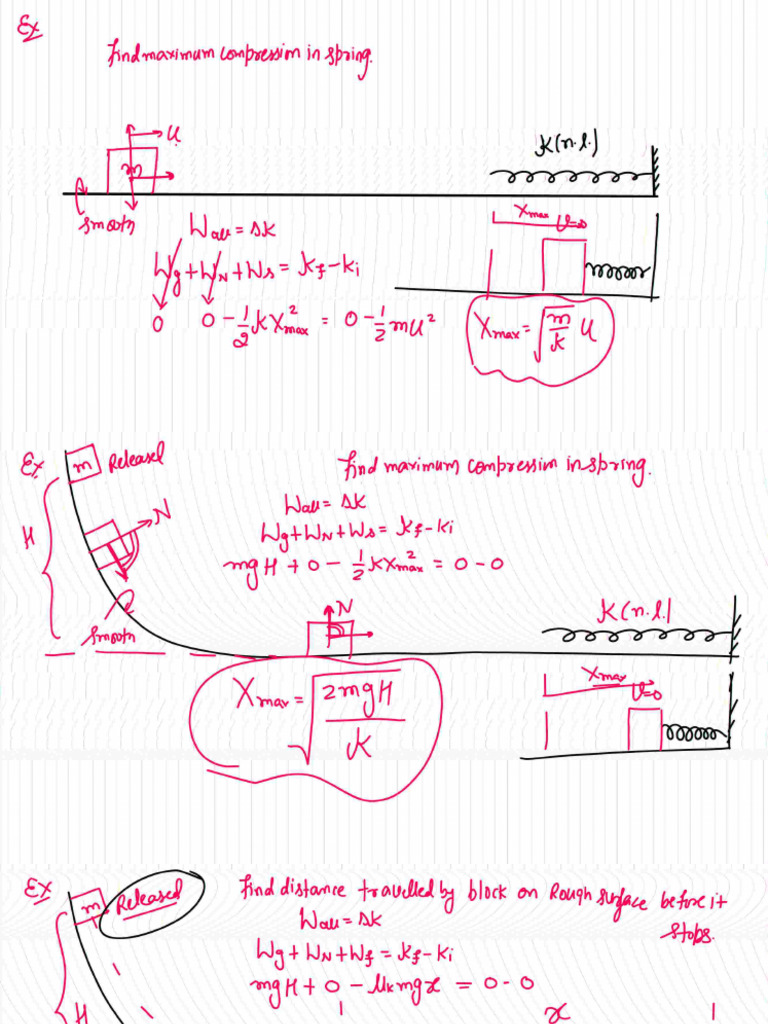 Ex
find maximum compression in spring.
U
K(n.l.)
m
Xmax
smooth
Wall = ΔK
U=0
Wg + WN + Ws = Kf - Ki
0 0 - 1/2 K Xmax² = 0 - 1/2 mU²
Xmax = √(m/K) U
Ex
m Released
find maximum compression in spring.
Wall = ΔK
N
H
Wg + WN + Ws = Kf - Ki
mgH + 0 - 1/2 K Xmax² = 0 - 0
N
K(n.l.)
smooth
Xmax
U=0
Xmax = √(2mgH/K)
Ex
m Released
find distance travelled by block on Rough surface before it
stops.
Wall = ΔK
Wg + WN + Wf = Kf - Ki
mgH + 0 - μk mgx = 0 - 0
H
x